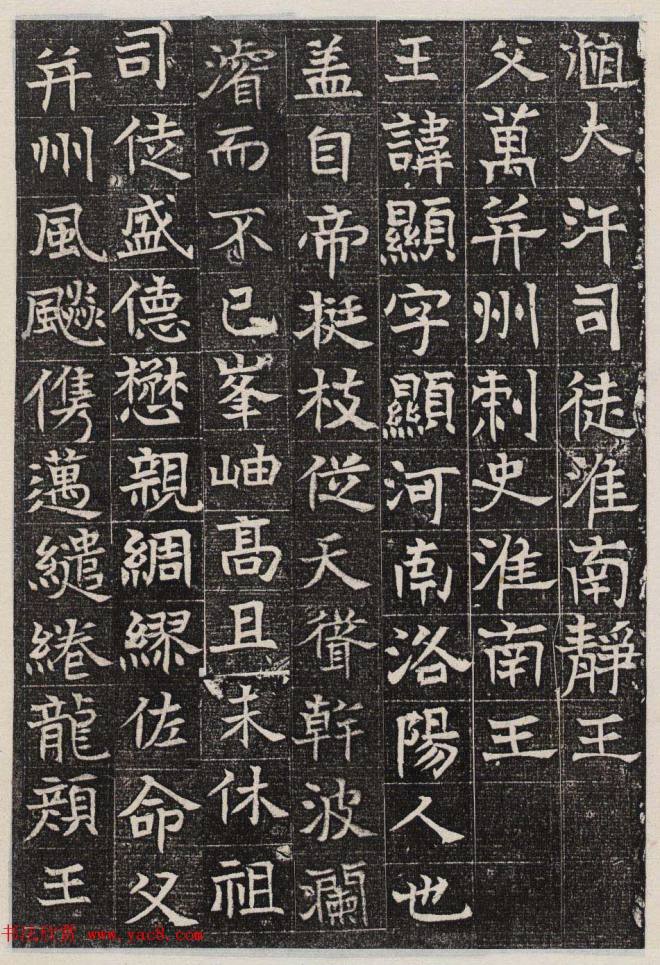 涵大汗司徒淮南靜王
父萬并州刺史淮南王
王諱顯字顯河南洛陽人也
盖自帝挺枝従天聳幹波瀾
濬而不已峯岫髙且未休祖
司徒盛德懋親綢繆佐命父
并州風飈儁邁繾綣龍顏王
书法欣赏 www.yac8.com